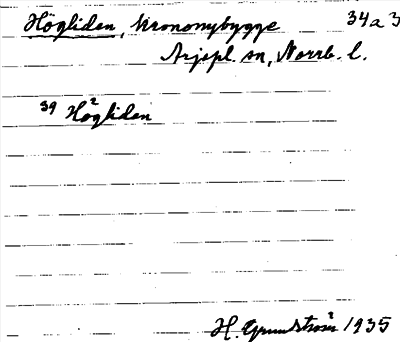 Högliden, Krononybygge 34a3
Arjepl. sn, Norrb. l.
39 Hö2gliden
H. Grundström 1935